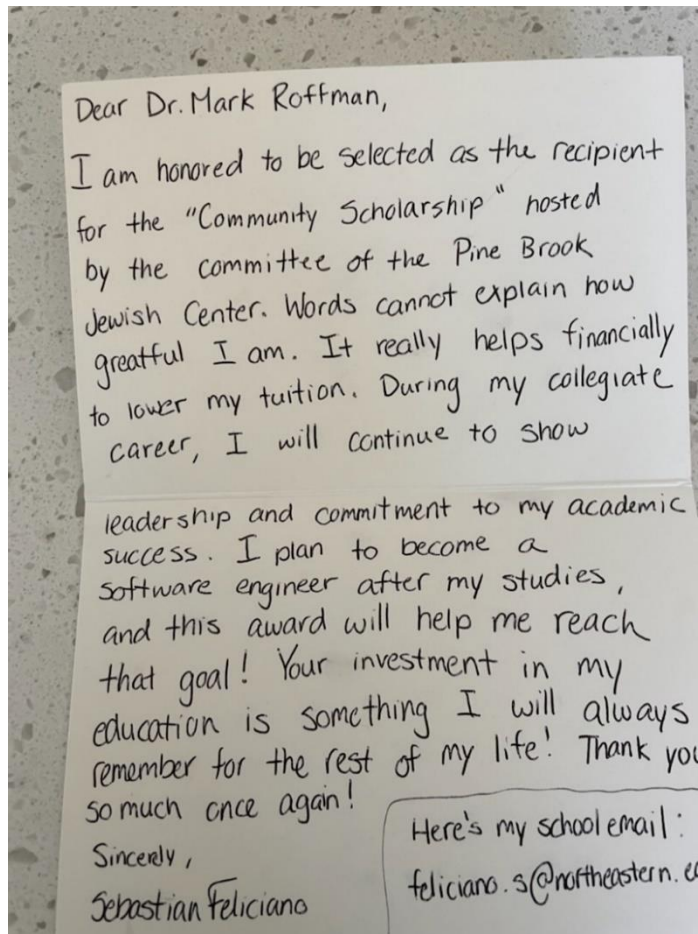 Dear Dr. Mark Roffman,
I am honored to be selected as the recipient
for the "Community Scholarship" hosted
by the committee of the Pine Brook
Jewish Center. Words cannot explain how
greatful I am. It really helps financially
to lower my tuition. During my collegiate
career, I will continue to show
leadership and commitment to my academic
success. I plan to become a
software engineer after my studies,
and this award will help me reach
that goal! Your investment in my
education is something I will always
remember for the rest of my life! Thank you
so much once again!
Sincerly,
Sebastian Feliciano
Here's my school email:
feliciano.s@northeastern.e